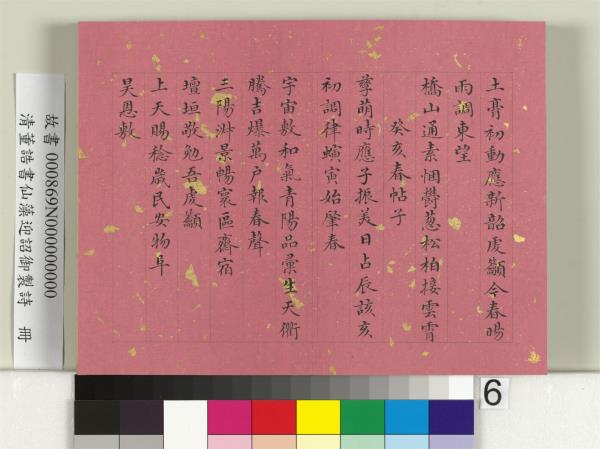 土膏初動應新韶虔籲今春暘
雨調東望
橋山通素悃鬱葱松柏接雲霄
癸亥春帖子
孳萌時應子振美日占辰該亥
初調律螾寅始肇春
宇宙敷和氣青陽品彙生天衢
騰吉爆萬戶報春聲
三陽淑景暢寰區齋宿
壇垣敬勉吾虔籲
上天賜稔歲民安物阜
昊恩敷
故書 000869N000000000
清董誥書仙藻迎韶御製詩 冊
6